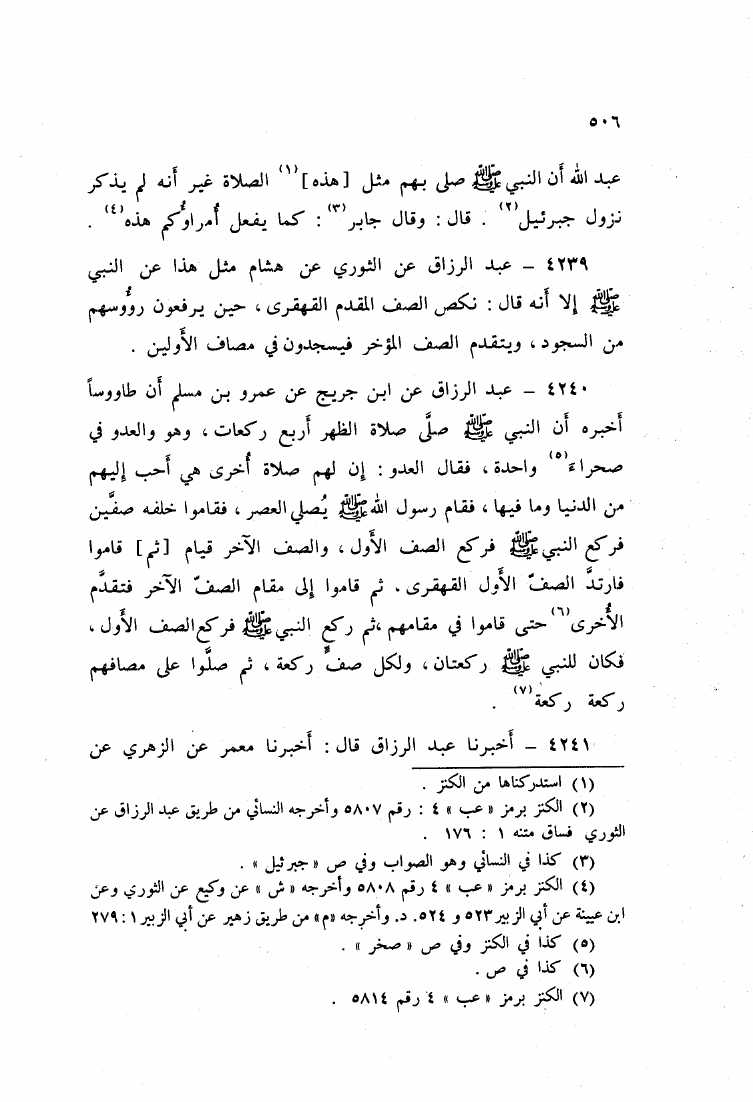 ٥٠٦
عبد الله أن النبي ﷺ صلى بهم مثل [هذه](١) الصلاة غير أنه لم يذكر
نزول جبرئيل(٢) . قال : وقال جابر(٣) : كما يفعل أُمراؤكم هذه(٤) .
٤٢٣٩ – عبد الرزاق عن الثوري عن هشام مثل هذا عن النبي
ﷺ إلا أنه قال : نكص الصف المقدم القهقرى ، حين يرفعون رؤُوسهم
من السجود ، ويتقدم الصف المؤخر فيسجدون في مصاف الأَولين .
٤٢٤٠ – عبد الرزاق عن ابن جريج عن عمرو بن مسلم أن طاووساً
أخبره أن النبي ﷺ صلَّى صلاة الظهر أربع ركعات ، وهو والعدو في
صحراء(٥) واحدة ، فقال العدو : إن لهم صلاة أُخرى هي أحب إليهم
من الدنيا وما فيها ، فقام رسول الله ﷺ يُصلي العصر ، فقاموا خلفه صفَّين
فركع النبي ﷺ فركع الصف الأَول ، والصف الآخر قيام [ثم] قاموا
فارتدَّ الصفُّ الأَول القهقرى . ثم قاموا إلى مقام الصفّ الآخر فتقدَّم
الأُخرى(٦) حتى قاموا في مقامهم ،ثم ركع النبي ﷺ فركع الصف الأَول ،
فكان للنبي ﷺ ركعتان ، ولكل صفٍّ ركعة ، ثم صلَّوا على مصافهم
ركعة ركعة(٧) .
٤٢٤١ – أخبرنا عبد الرزاق قال : أخبرنا معمر عن الزهري عن
(١) استدركناها من الكنز .
(٢) الكنز برمز « عب » ٤ : رقم ٥٨٠٧ وأخرجه النسائي من طريق عبد الرزاق عن
الثوري فساق متنه ١ : ١٧٦ .
(٣) كذا في النسائي وهو الصواب وفي ص « جبرئيل » .
(٤) الكنز برمز « عب » ٤ رقم ٥٨٠٨ وأخرجه « ش » عن وكيع عن الثوري وعن
ابن عيينة عن أبي الزبير ٥٢٣ و ٥٢٤ .د. وأخرجه «م» من طريق زهير عن أبي الزبير ١ : ٢٧٩
(٥) كذا في الكنز وفي ص « صخر » .
(٦) كذا في ص .
(٧) الكنز برمز « عب » ٤ رقم ٥٨١٤ .